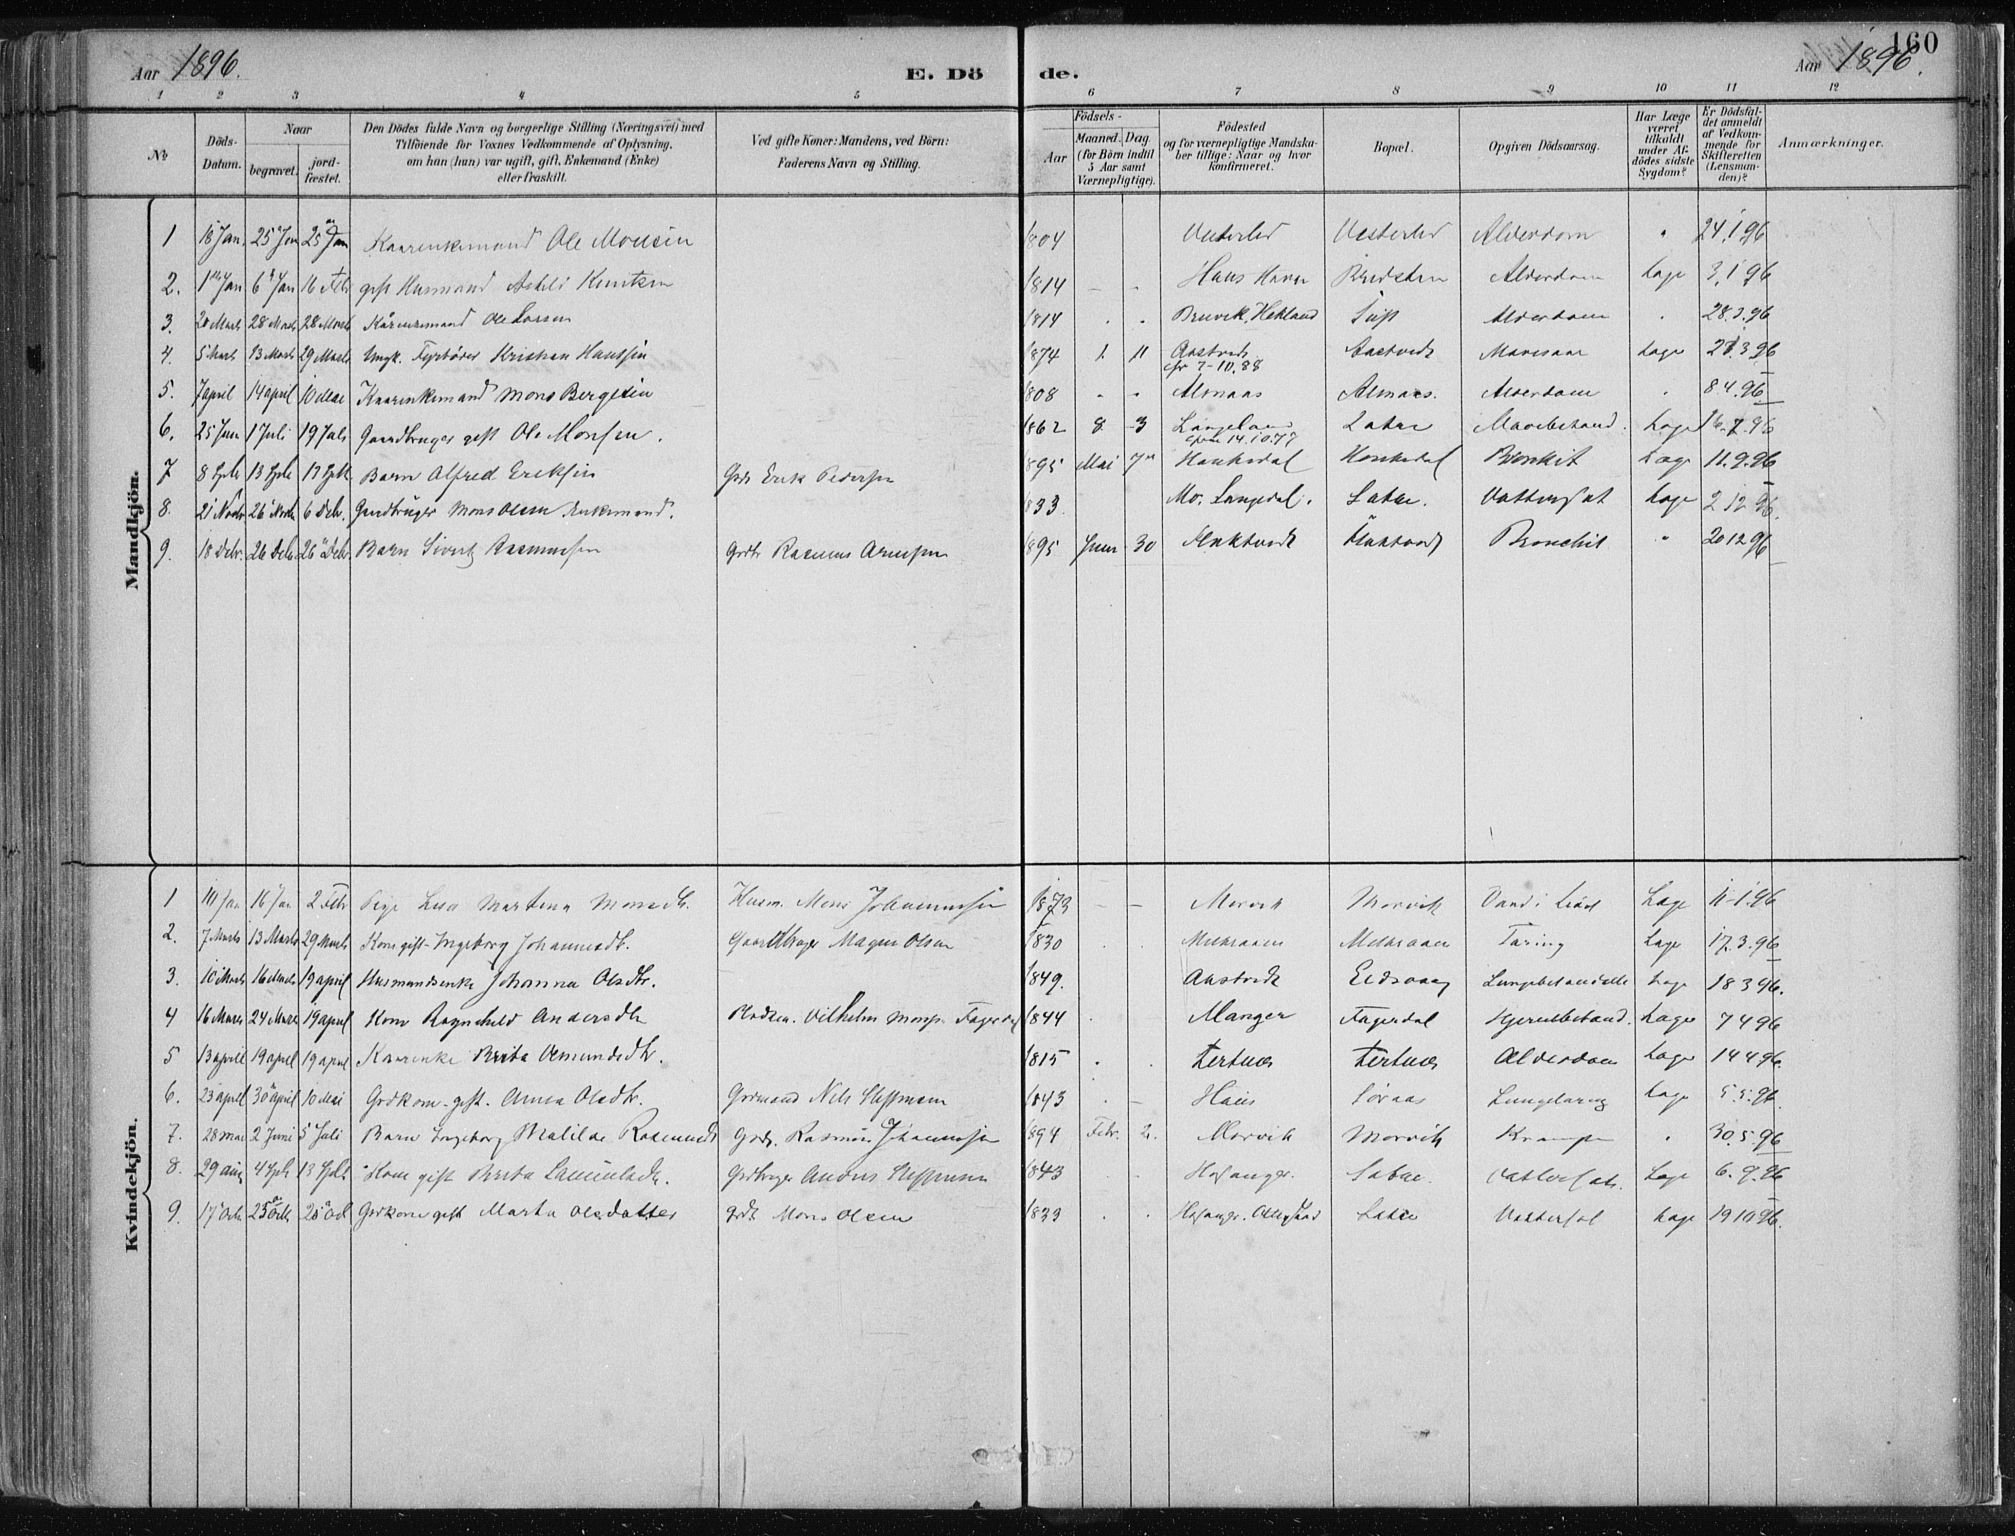 160
Aar 1896.
E. Döde.
Aar 1896.
1 2 3 4 5 6 7 8 9 10 11 12
No
Döds-Datum.
Naar
begravet.
jordfæstet.
Den Dödes fulde Navn og borgerlige Stilling (Næringsvei) med
Tilföiende for Voxnes Vedkommende af Oplysning,
om han (hun) var ugift, gift, Enkemand (Enke)
eller fraskilt.
Ved gifte Koner: Mandens, ved Börn:
Faderens Navn og Stilling.
Födsels-
Aar
Maaned. Dag.
(for Börn indtil
5 Aar samt
Værnepligtige).
Födested
og for værnepligtige Mandskaber tillige: Naar og hvor
konfirmeret.
Bopæl.
Opgiven Dödsaarsag.
Har Læge
været
tilkaldt
under Afdödes sidste
Sygdom?
Er Dödsfaldet anmeldt
af Vedkommende for
Skifteretten
(Lensmanden)?
Anmærkninger.
Mandkjön.
1 18 Jan. 25 Jan 25 Jan Kaarenkemand Ole Monsen 1804 Vesterled Vesterled Alderdom " 24.1.96
2. 1 Jan 6 Jan 16 Febr gift Husmand Knutsen 1814 - - Haus Alderdom Læge 3.1.96
3. 20 Marts 28 Marts 28 Marts Kårenkemand Ole Larsen 1814 . . Bruvik, Alderdom . 28.3.96
4. 5 Marts 13 Marts 29 Marts Ungk. Fyrbøder Kristian Hansen 1874 1. 11 Aastvedt Aastvedt Læge 21.3.96
cfr 7-10.88
5. 7 april 14 april 10 Mai Kaarenkemand Mons Bergesen 1808 . . Almaas Almaas. Alderdom . 8.4.96
6. 25 Juni 1 Juli 19 Juli Gaardbruger gift Ole Monsen. 1862 8 3 Langeland Mavebetænd. Læge 16.7.96
14.10.77
7 8 Sptb 13 Sptb 17 Sptb Barn Alfred Eriksen Gbr Erik Pedersen 1895 Mai 7 Haukedal Haukedal Bronkit Læge 11.9.96
8. 21 Novbr 26 Novbr 6 Debr. Gaardbruger Mons Olsen Enkemand. 1833 Vattersot Læge 2.12.96.
9. 18 Debr. 26 Debr 26 Debr Barn Sivert Rasmussen Grdbr Rasmus Arnesen 1895 Juni 30 Bronchit " 20 12 96
Kvindekjön.
1 10 Jan 16 Jan 2 Febr Pige Lisa Martina Monsdtr. Husm. Mons Johannessen 1873 - - Morvik Morvik Læge 11-1.96
2. 7 Marts 13 Marts 29 Marts Kone gift Ingeborg Johannesdtr. Gaardbruger Magne Olsen 1830 . . Midtraaen Midtraaen Tæring Læge 17.3.96
3. 10 Marts 16 Marts 19 april Husmandsenke Johanna Olsdtr. 1849. Aastvedt Eidsvaag Lungebetændelse Læge 18 3 96.
4 16 Mars 24 Mars 19 april Kone Ragnhild Andersdtr Pladsm. Vilhelm Fagerdal 1844 . Manger Fagerdal Hjernebetænd. Læge 7 4 96
5 13 april 19 april 19 april Kaarenke Brita Osmundsdtr. 1815 . . Tertnes Tertnes Alderdom Læge 14 4 96.
6. 23 april 30 april 10 Mai Grdkone gift. Anna Olsdtr. Grdmand Nils Steffensen 1843 . - Haus Søraas Lungetæring Læge 5.5.96.
7. 28 mai 2 Juni 5 Juli Barn Ingeborg Matilde Rasmusdtr Grdbr. Rasmus Johannessen 1894 Febr. 2. Morvik Morvik Krampe . 30.5.96
8. 29 aug 4 Sptb 13 Sptb Kone gift Brita Grdbruger Anders Steffensen 1843 Hosanger. Vattersot. Læge 6.9.96
9. 17 Okt 25 Okt 25 Okt Grdkone gift Marta Olsdatter Grdb Mons Olsen 1833 . . Hosanger. Vattersot Læge 19 10 96.